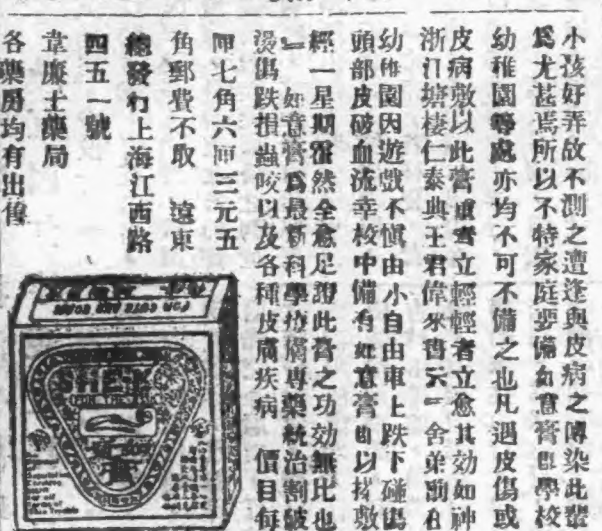 小孩好弄故不測之遭逢與皮病之傳染此輩
爲尤甚焉所以不特家庭要備如意膏即學校
幼稚園等處亦均不可不備之也凡遇皮傷或
皮病敷以此膏重者立輕輕者立愈其効如神
浙江塘棲仁泰典王君偉來書云「舍弟前在
幼稚園因遊戲不慎由小自由車上跌下碰傷
頭部皮破血流幸校中備有如意膏即以搽敷
經一星期霍然全愈足證此膏之功効無比也
」如意膏爲最新科學療膚專藥統治割破
燙傷跌損蟲咬以及各種皮膚疾病 價目每
匣七角六匣三元五
角郵費不取 遠東
總發行上海江西路
四五一號
韋廉士藥局
各藥房均有出售
FOR CUTS AND SORES
SHEK
FOR THE SKIN